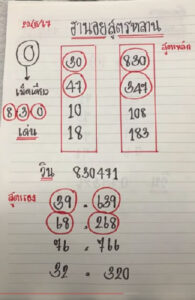 20/8/67 ฐานอยสูตรหลาน
สูตรหลัก
0 30 830
เม็ดเดียว 47 347
8 3 0 10 108
เด่น 18 183
วิน 830471
สูตรรอง 39 - 639
68 . 268
76 . 766
32 . 320